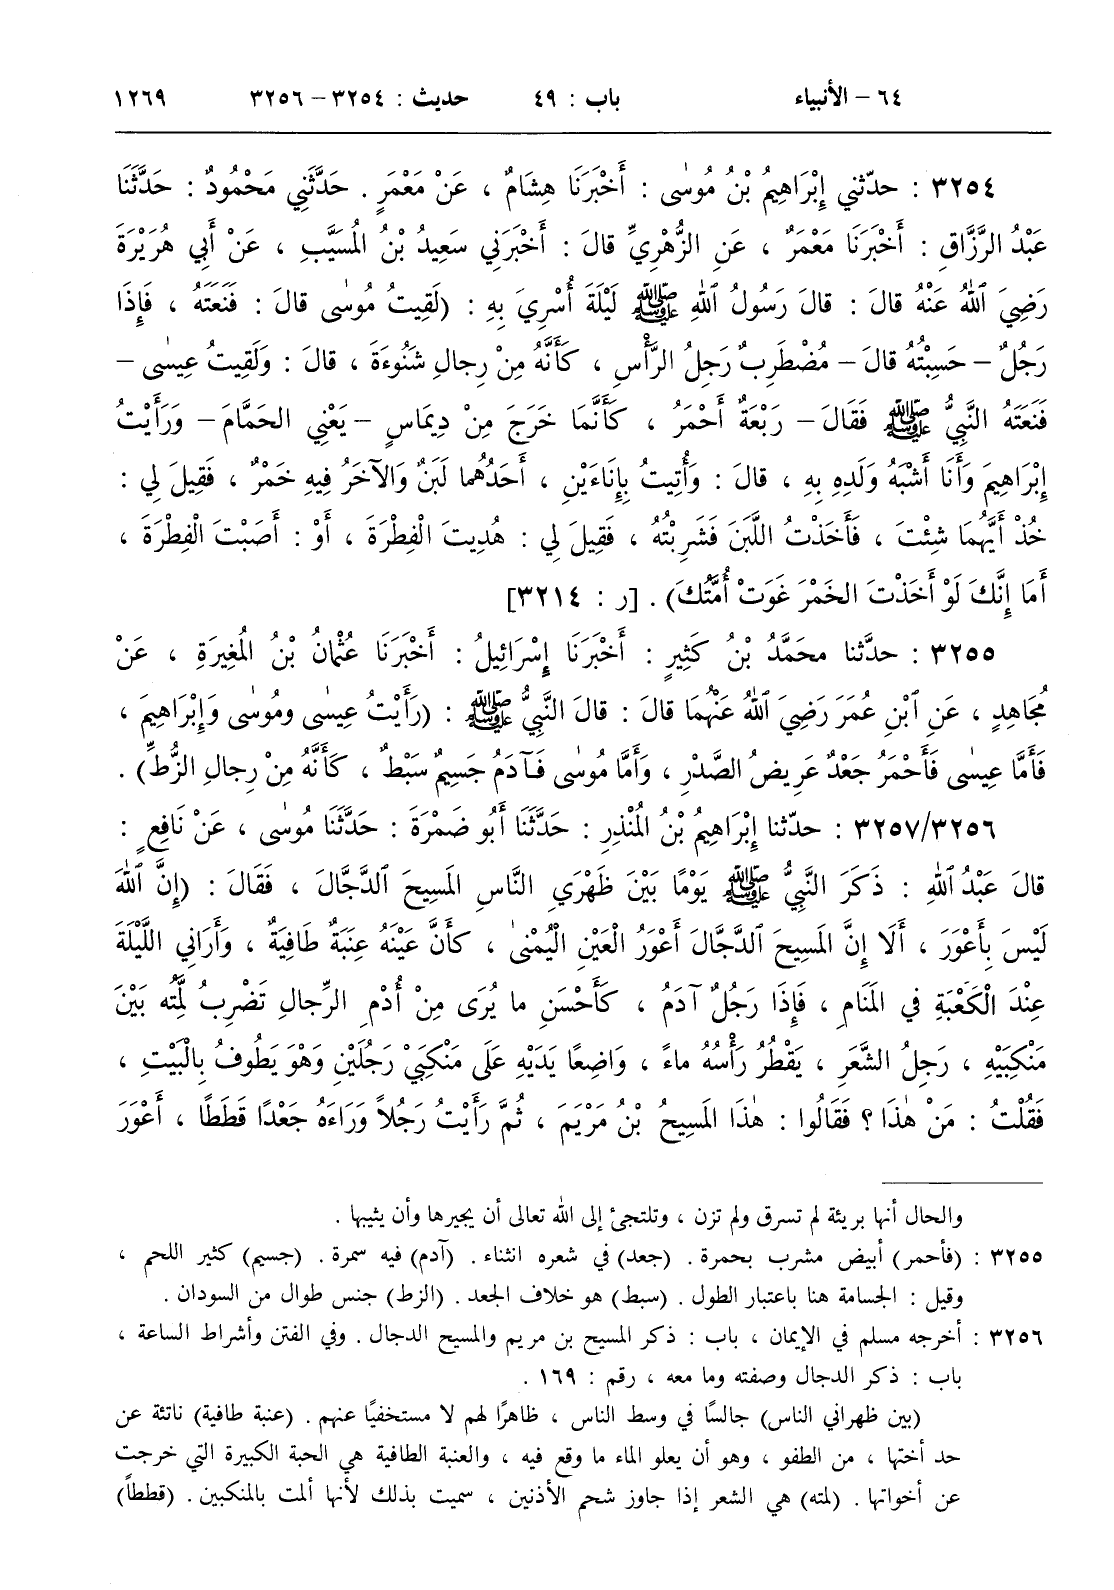 ٦٤ – الأنبياء باب : ٤٩ حديث : ٣٢٥٤ – ٣٢٥٦ ١٢٦٩
٣٢٥٤ : حدّثني إِبْرَاهِيمُ بْنُ مُوسٰى : أَخْبَرَنَا هِشَامٌ ، عَنْ مَعْمَرٍ . حَدَّثَنِي مَحْمُودٌ : حَدَّثَنَا
عَبْدُ الرَّزَّاقِ : أَخْبَرَنَا مَعْمَرٌ ، عَنِ الزُّهْرِيِّ قالَ : أَخْبَرَنِي سَعِيدُ بْنُ الْمُسَيَّبِ ، عَنْ أَبِي هُرَيْرَةَ
رَضِيَ ٱللهُ عَنْهُ قالَ : قالَ رَسُولُ ٱللهِ ﷺ لَيْلَةَ أُسْرِيَ بِهِ : (لَقِيتُ مُوسٰى قالَ : فَنَعَتَهُ ، فَإِذَا
رَجُلٌ – حَسِبْتُهُ قالَ – مُضْطَرِبٌ رَجِلُ الرَّأْسِ ، كَأَنَّهُ مِنْ رِجالِ شَنُوءَةَ ، قالَ : وَلَقِيتُ عِيسٰى –
فَنَعَتَهُ النَّبِيُّ ﷺ فَقَالَ – رَبْعَةٌ أَحْمَرُ ، كَأَنَّمَا خَرَجَ مِنْ دِيمَاسٍ – يَعْنِي الحَمَّامَ – وَرَأَيْتُ
إِبْرَاهِيمَ وَأَنَا أَشْبَهُ وَلَدِهِ بِهِ ، قالَ : وَأُتِيتُ بِإِنَاءَيْنِ ، أَحَدُهُما لَبَنٌ وَالآخَرُ فِيهِ خَمْرٌ ، فَقِيلَ لِي :
خُذْ أَيَّهُمَا شِئْتَ ، فَأَخَذْتُ اللَّبَنَ فَشَرِبْتُهُ ، فَقِيلَ لِي : هُدِيتَ الْفِطْرَةَ ، أَوْ : أَصَبْتَ الْفِطْرَةَ ،
أَمَا إِنَّكَ لَوْ أَخَذْتَ الخَمْرَ غَوَتْ أُمَّتُكَ) . [ر : ٣٢١٤]
٣٢٥٥ : حدّثنا محَمَّدُ بْنُ كَثِيرٍ : أَخْبَرَنَا إِسْرَائِيلُ : أَخْبَرَنَا عُثْمانُ بْنُ المُغِيرَةِ ، عَنْ
مُجَاهِدٍ ، عَنِ ٱبْنِ عُمَرَ رَضِيَ ٱللهُ عَنْهُمَا قالَ : قالَ النَّبِيُّ ﷺ : (رَأَيْتُ عِيسٰى ومُوسٰى وَإِبْرَاهِيمَ ،
فَأَمَّا عِيسٰى فَأَحْمَرُ جَعْدٌ عَرِيضُ الصَّدْرِ ، وَأَمَّا مُوسٰى فَآدَمُ جَسِيمٌ سَبْطٌ ، كَأَنَّهُ مِنْ رِجالِ الزُّطِّ) .
٣٢٥٧/٣٢٥٦ : حدّثنا إِبْرَاهِيمُ بْنُ المُنْذِرِ : حَدَّثَنَا أَبُو ضَمْرَةَ : حَدَّثَنَا مُوسٰى ، عَنْ نَافِعٍ :
قالَ عَبْدُ ٱللهِ : ذَكَرَ النَّبِيُّ ﷺ يَوْمًا بَيْنَ ظَهْرَيِ النَّاسِ المَسِيحَ ٱلدَّجَّالَ ، فَقَالَ : (إِنَّ ٱللهَ
لَيْسَ بِأَعْوَرَ ، أَلَا إِنَّ المَسِيحَ ٱلدَّجَّالَ أَعْوَرُ الْعَيْنِ الْيُمْنىٰ ، كأَنَّ عَيْنَهُ عِنَبَةٌ طَافِيَةٌ ، وَأَرَانِي اللَّيْلَةَ
عِنْدَ الْكَعْبَةِ فِي المَنَامِ ، فَإِذَا رَجُلٌ آدَمُ ، كَأَحْسَنِ ما يُرَى مِنْ أُدْمِ الرِّجالِ تَضْرِبُ لِمَّتُه بَيْنَ
مَنْكِبَيْهِ ، رَجِلُ الشَّعَرِ ، يَقْطُرُ رَأْسُهُ ماءً ، وَاضِعًا يَدَيْهِ عَلَى مَنْكِبَيْ رَجُلَيْنِ وَهْوَ يَطُوفُ بِالْبَيْتِ ،
فَقُلْتُ : مَنْ هٰذَا ؟ فَقَالُوا : هٰذَا المَسِيحُ بْنُ مَرْيَمَ ، ثُمَّ رَأَيْتُ رَجُلاً وَرَاءَهُ جَعْدًا قَطَطًا ، أَعْوَرَ
والحال أنها بريئة لم تسرق ولم تزن ، وتلتجئ إلى الله تعالى أن يجيرها وأن يثيبها .
٣٢٥٥ : (فأحمر) أبيض مشرب بحمرة . (جعد) في شعره انثناء . (آدم) فيه سمرة . (جسيم) كثير اللحم ،
وقيل : الجسامة هنا باعتبار الطول . (سبط) هو خلاف الجعد . (الزط) جنس طوال من السودان .
٣٢٥٦ : أخرجه مسلم في الإيمان ، باب : ذكر المسيح بن مريم والمسيح الدجال . وفي الفتن وأشراط الساعة ،
باب : ذكر الدجال وصفته وما معه ، رقم : ١٦٩ .
(بين ظهراني الناس) جالسًا في وسط الناس ، ظاهرًا لهم لا مستخفيًا عنهم . (عنبة طافية) ناتئة عن
حد أختها ، من الطفو ، وهو أن يعلو الماء ما وقع فيه ، والعنبة الطافية هي الحبة الكبيرة التي خرجت
عن أخواتها . (لمته) هي الشعر إذا جاوز شحم الأذنين ، سميت بذلك لأنها ألمت بالمنكبين . (قططاً)